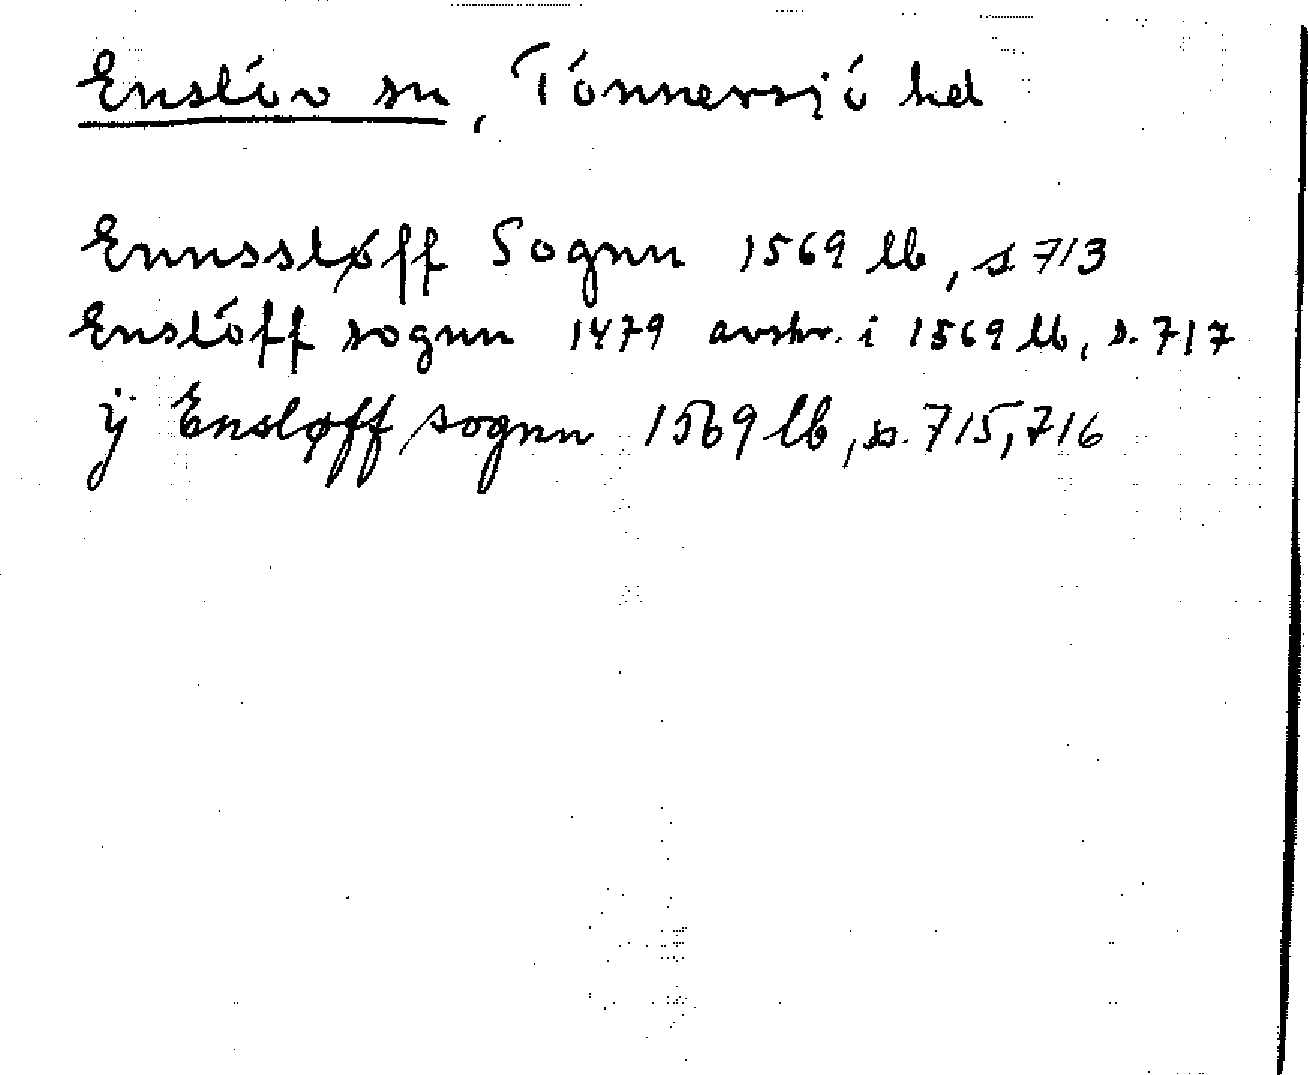 Enslöv sn, Tönnersjö hd
Ennssløff Sognn 1569 lb, s 713
Enslöff sognn 1479 avskr. i 1569 lb, s. 717
ÿ Ensløff sognn 1569 lb, s. 715, 716